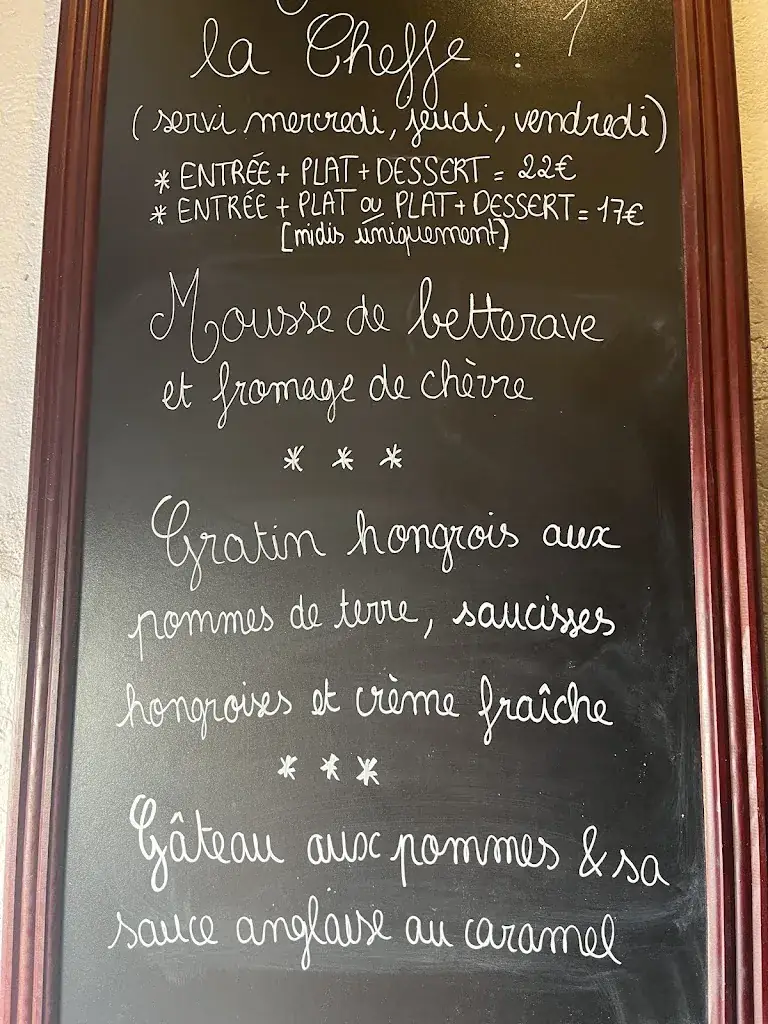 la Cheffe :
(servi mercredi, jeudi, vendredi)
* ENTRÉE + PLAT + DESSERT = 22€
* ENTRÉE + PLAT OU PLAT + DESSERT = 17€
[midis uniquement]
Mousse de betterave
et fromage de chèvre
* * *
Gratin hongrois aux
pommes de terre, saucisses
hongroises et crème fraîche
* * *
Gâteau aux pommes & sa
sauce anglaise au caramel